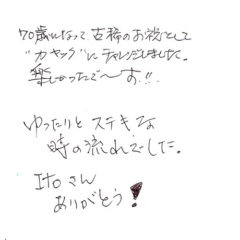 70歳になって古稀のお祝として
"カヤック"にチャレンジしました。
楽しかったで〜す!!
ゆったりとステキな
時の流れでした。
Itoさん
ありがとう!